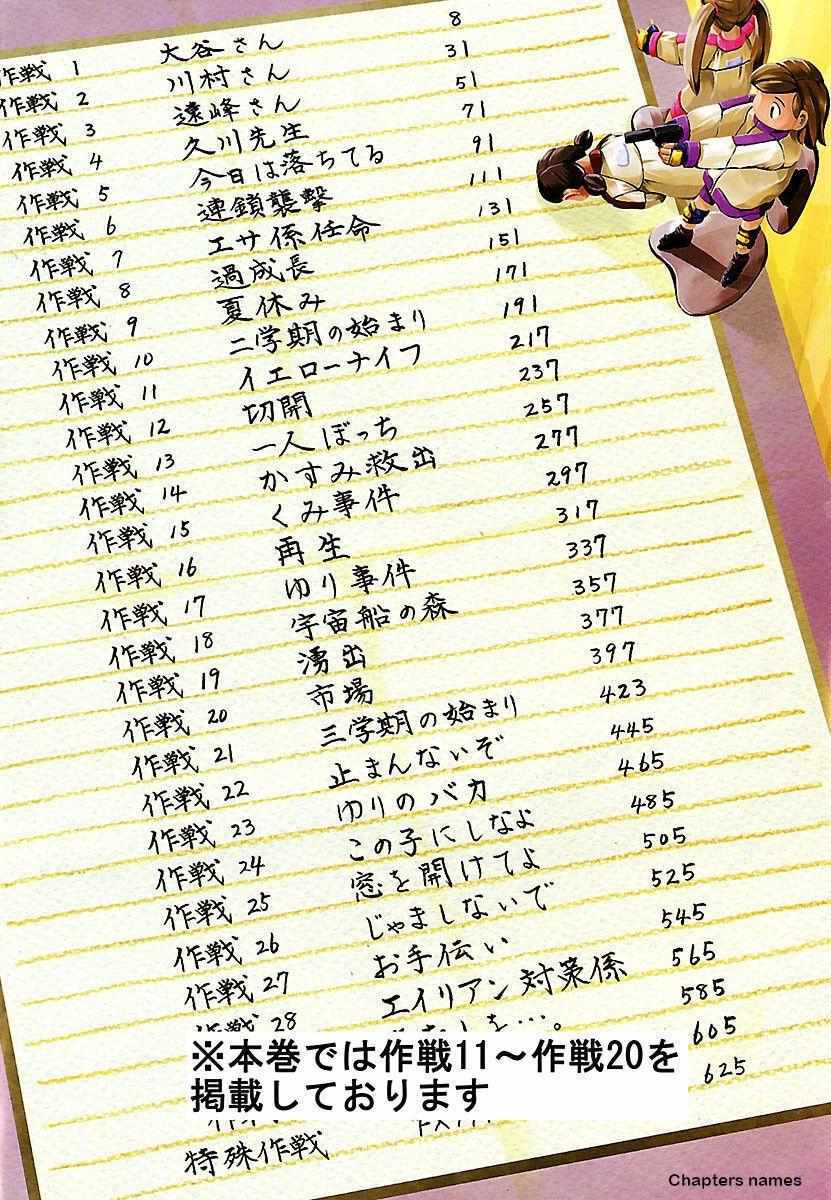 作戦 1 大谷さん 8
作戦 2 川村さん 31
作戦 3 遠峰さん 51
作戦 4 久川先生 71
作戦 5 今日は落ちてる 91
作戦 6 連鎖襲撃 111
作戦 7 エサ係任命 131
作戦 8 過成長 151
作戦 9 夏休み 171
作戦 10 二学期の始まり 191
作戦 11 イエローナイフ 217
作戦 12 切開 237
作戦 13 一人ぼっち 257
作戦 14 かすみ救出 277
作戦 15 くみ事件 297
作戦 16 再生 317
作戦 17 ゆり事件 337
作戦 18 宇宙船の森 357
作戦 19 湧出 377
作戦 20 市場 397
作戦 21 三学期の始まり 423
作戦 22 止まんないぞ 445
作戦 23 ゆりのバカ 465
作戦 24 この子にしなよ 485
作戦 25 窓を開けてよ 505
作戦 26 じゃましないで 525
作戦 27 お手伝い 545
作戦 28 エイリアン対策係 565
585
605
特殊作戦 625
※本巻では作戦11～作戦20を
掲載しております
Chapters names